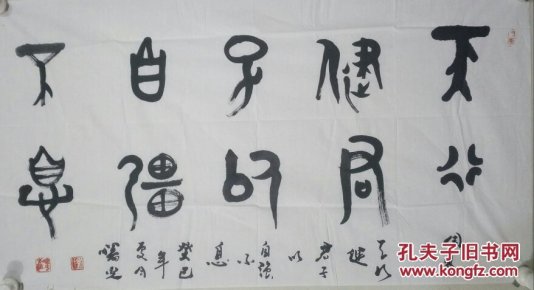 天行
健君
子以
自彊
不息
周易
天行
健
君子
以
自強
不
息
癸巳
年
夏月
孔夫子旧书网
www.kongfz.com